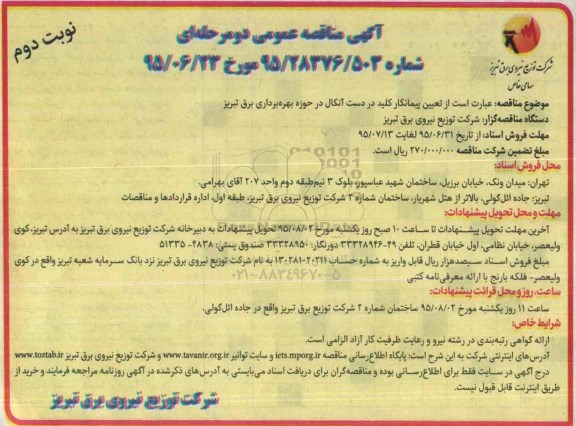 نوبت دوم
آگهی مناقصه عمومی دومرحله‌ای
شماره ۹۵/۲۸۳۷۶/۵۰۳ مورخ ۹۵/۰۶/۲۳
شرکت توزیع نیروی برق تبریز
سهامی خاص
موضوع مناقصه: عبارت است از تعیین پیمانکار کلید در دست آنکال در حوزه بهره‌برداری برق تبریز
دستگاه مناقصه‌گزار: شرکت توزیع نیروی برق تبریز
مهلت فروش اسناد: از تاریخ ۹۵/۰۶/۳۱ لغایت ۹۵/۰۷/۱۳
مبلغ تضمین شرکت مناقصه ۲۷۰/۰۰۰/۰۰۰ ریال است.
محل فروش اسناد:
تهران: میدان ونک، خیابان برزیل، ساختمان شهید عباسپور، بلوک ۳ نیم‌طبقه دوم واحد ۲۰۷ آقای بهرامی.
تبریز: جاده ائل‌گولی، بالاتر از هتل شهریار، ساختمان شماره ۲ شرکت توزیع نیروی برق تبریز، طبقه اول، اداره قراردادها و مناقصات
مهلت و محل تحویل پیشنهادات:
آخرین مهلت تحویل پیشنهادات تا ساعت ۱۰ صبح روز یکشنبه مورخ ۹۵/۰۸/۰۲ تحویل پیشنهادات به دبیرخانه شرکت توزیع نیروی برق تبریز به آدرس تبریز، کوی
ولیعصر، خیابان نظامی، اول خیابان قطران، تلفن ۴۹-۳۳۳۲۸۹۴۶ دورنگار: ۳۳۳۲۸۹۵۰ صندوق پستی: ۴۸۳۸-۵۱۳۳۵
مبلغ فروش اسناد سیصدهزار ریال قابل واریز به شماره حساب ۱۳۰۲۸۱۰۲۰۲۱۱ به نام شرکت توزیع نیروی برق تبریز نزد بانک سرمایه شعبه تبریز واقع در کوی
ولیعصر- فلکه بارنج با ارائه معرفی‌نامه کتبی
۰۲۱-۸۸۳۴۹۶۷۰-۵
ساعت، روز و محل قرائت پیشنهادات:
ساعت ۱۱ روز یکشنبه مورخ ۹۵/۰۸/۰۲ ساختمان شماره ۲ شرکت توزیع برق تبریز واقع در جاده ائل‌گولی.
شرایط خاص:
ارائه گواهی رتبه‌بندی در رشته نیرو و رعایت ظرفیت کار آزاد الزامی است.
آدرس‌های اینترنتی شرکت به این شرح است: پایگاه اطلاع‌رسانی مناقصه iets.mporg.ir و سایت توانیر www.tavanir.org.ir و شرکت توزیع نیروی برق تبریز www.toztab.ir
درج آگهی در سایت فقط برای اطلاع‌رسانی بوده و مناقصه‌گران برای دریافت اسناد می‌بایستی به آدرس‌های ذکرشده در آگهی روزنامه مراجعه فرمایند و خرید از
طریق اینترنت قابل قبول نیست.
شرکت توزیع نیروی برق تبریز